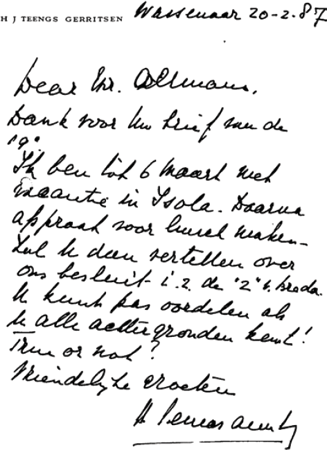 H J TEENGS GERRITSEN Wassenaar 20-2.87
Dear Mr.
Dank voor Uw brief van de
19e
Ik ben tot 6 Maart met
vacantie in Isola. Daarna
afspraak voor lunch maken-
Zal U dan vertellen over
ons besluit i.z. de "2" v. Breda.
U kunt pas oordelen als
U alle achtergronden kent!
True or not?
Vriendelijke Groeten
H